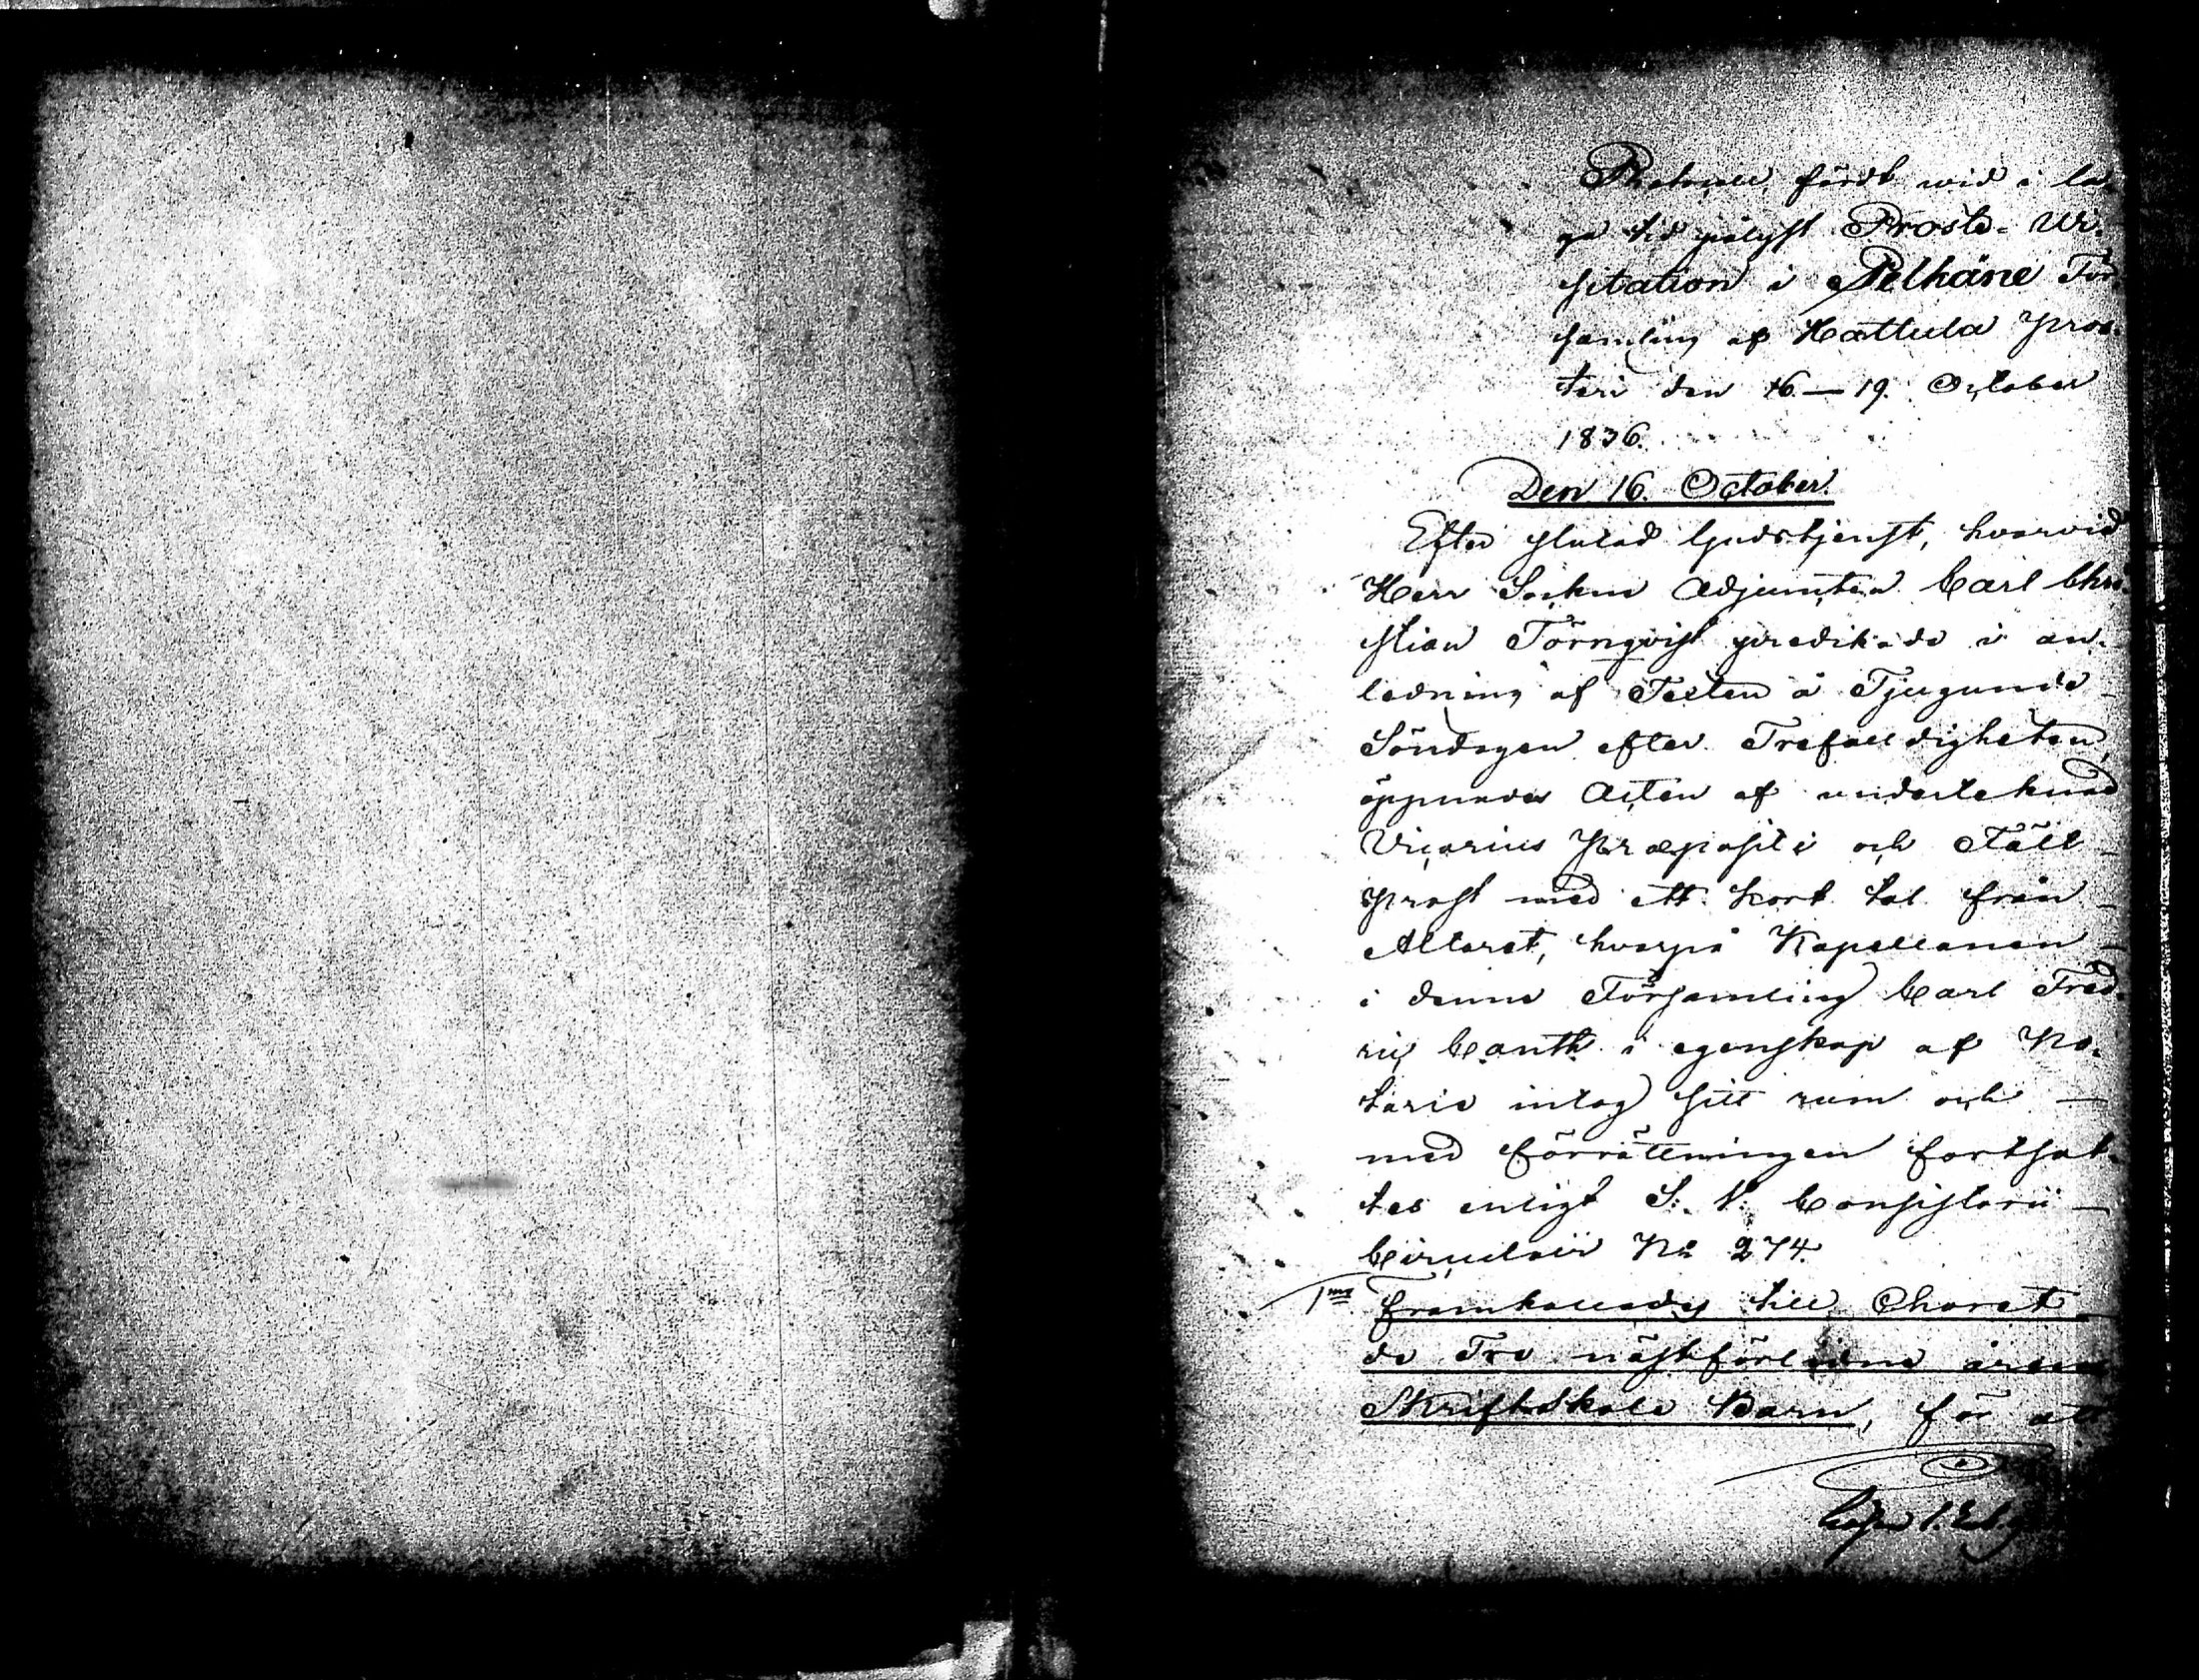 Protocoll, fördt wid i la-
ga tid pålyst Prosts-Wi-
sitation i Pelkäne För-
samling af Hattula pros-
teri den 16.—19. October
1836.
Den 16. October.
Efter slutad Gudstjenst, hvarvid
Herr Sockne Adjuncten Carl Chri-
stian Törnqvist predikade i an-
ledning af Texten å Tjugunde
Söndagen efter Trefaldigheten,
öppnades Acten af undertecknad
Vicarius Præpositi och Fält-
prost med ett kort tal från
Altaret, hvarpå Kapellanen
i denna Församling Carl Fred-
ric Canth i egenskap af No-
tarie intog sitt rum och —
med förrättningen fortsat-
tes enligt S. V. Consistorii —
Circulair No 274.
1mo Framkallades till Choret
de Tre nästförlidne årens
Skriftskole Barn, för att